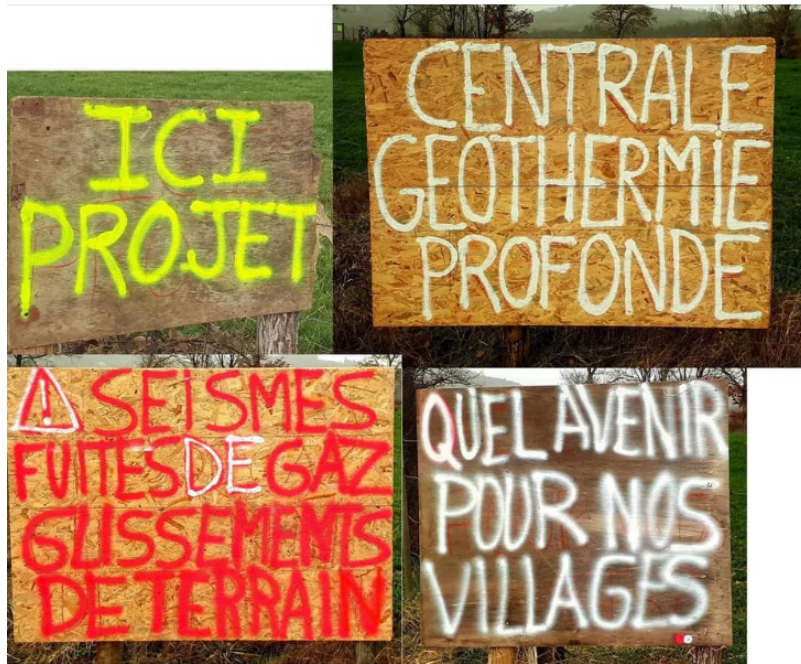 ICI
PROJET
CENTRALE
GEOTHERMIE
PROFONDE
! SEISMES
FUITES DE GAZ
GLISSEMENTS
DE TERRAIN
QUEL AVENIR
POUR NOS
VILLAGES